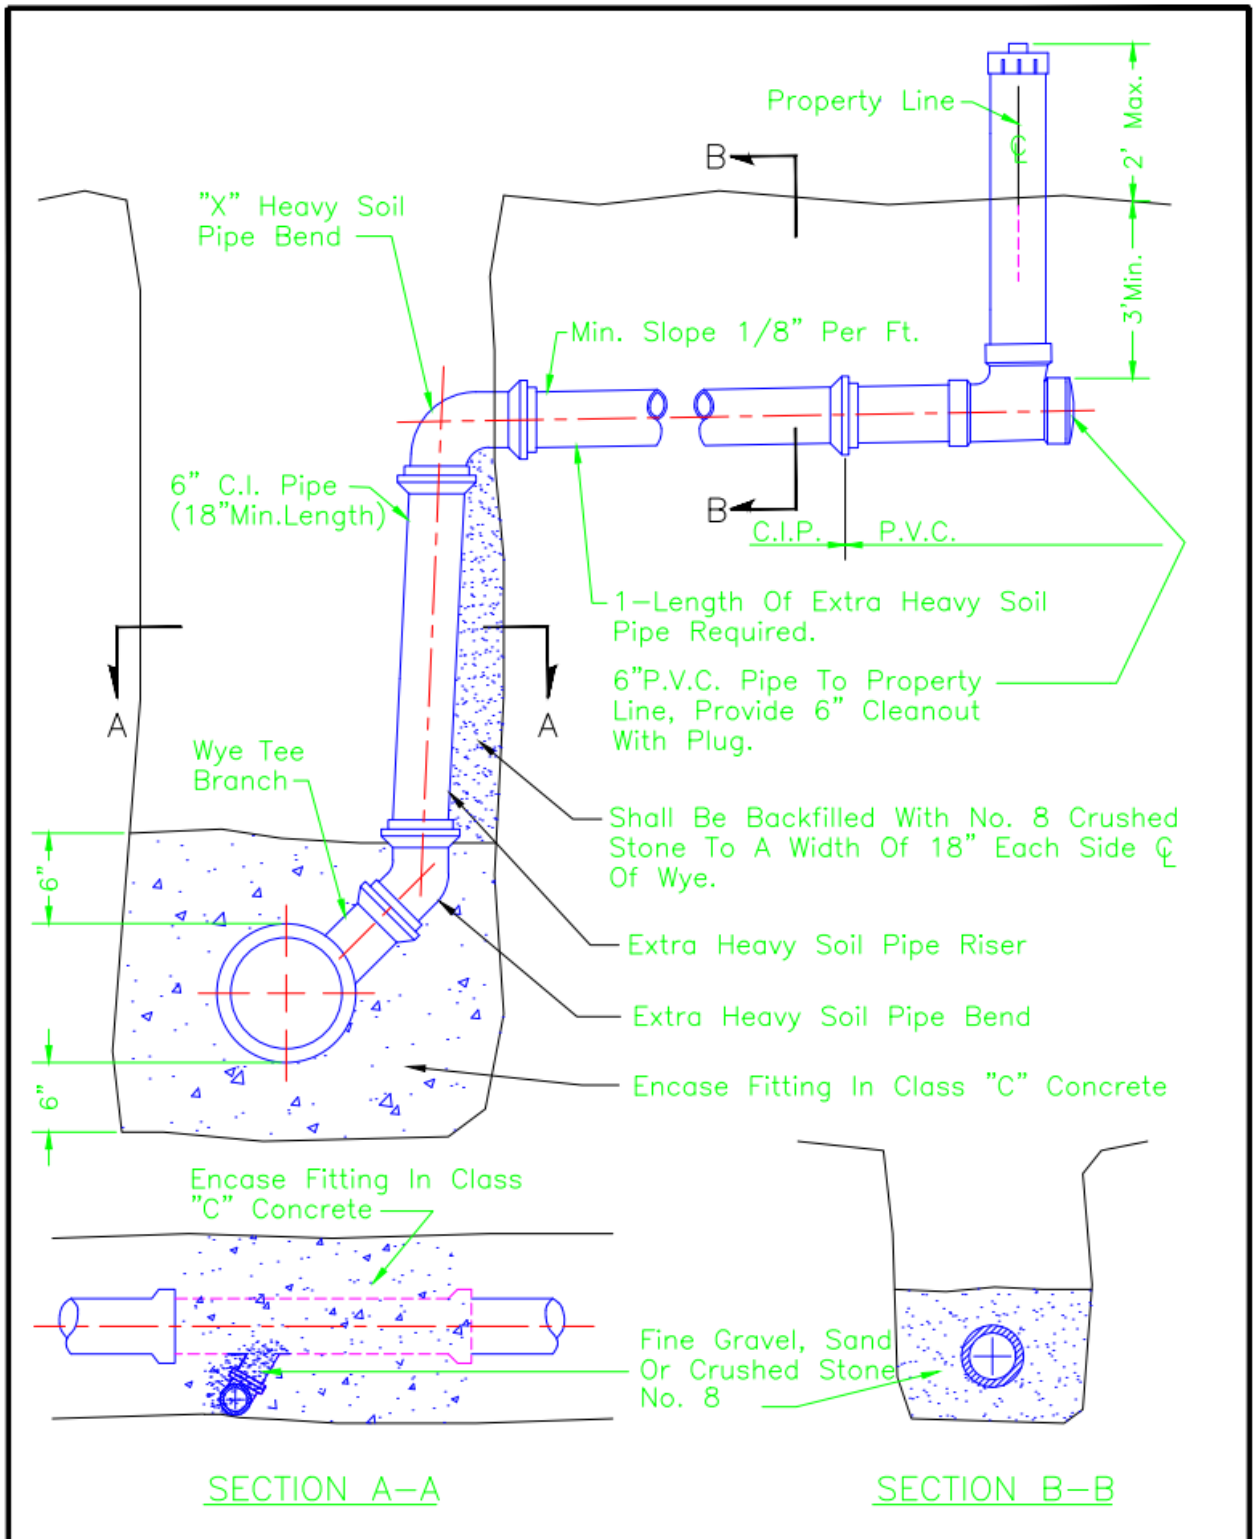 Property Line
2' Max.
B
"X" Heavy Soil
Pipe Bend
℄
3'Min.
Min. Slope 1/8" Per Ft.
6" C.I. Pipe
(18"Min.Length)
B
C.I.P.
P.V.C.
1-Length Of Extra Heavy Soil
Pipe Required.
6"P.V.C. Pipe To Property
Line, Provide 6" Cleanout
With Plug.
A
A
Wye Tee
Branch
Shall Be Backfilled With No. 8 Crushed
Stone To A Width Of 18" Each Side ℄
Of Wye.
6"
Extra Heavy Soil Pipe Riser
Extra Heavy Soil Pipe Bend
Encase Fitting In Class "C" Concrete
6"
Encase Fitting In Class
"C" Concrete
Fine Gravel, Sand
Or Crushed Stone
No. 8
SECTION A-A
SECTION B-B